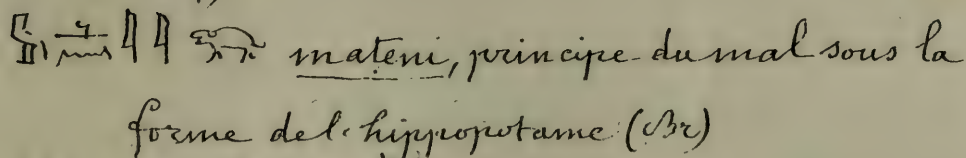 mateni, principe du mal sous la
forme de l'hippopotame (Br)